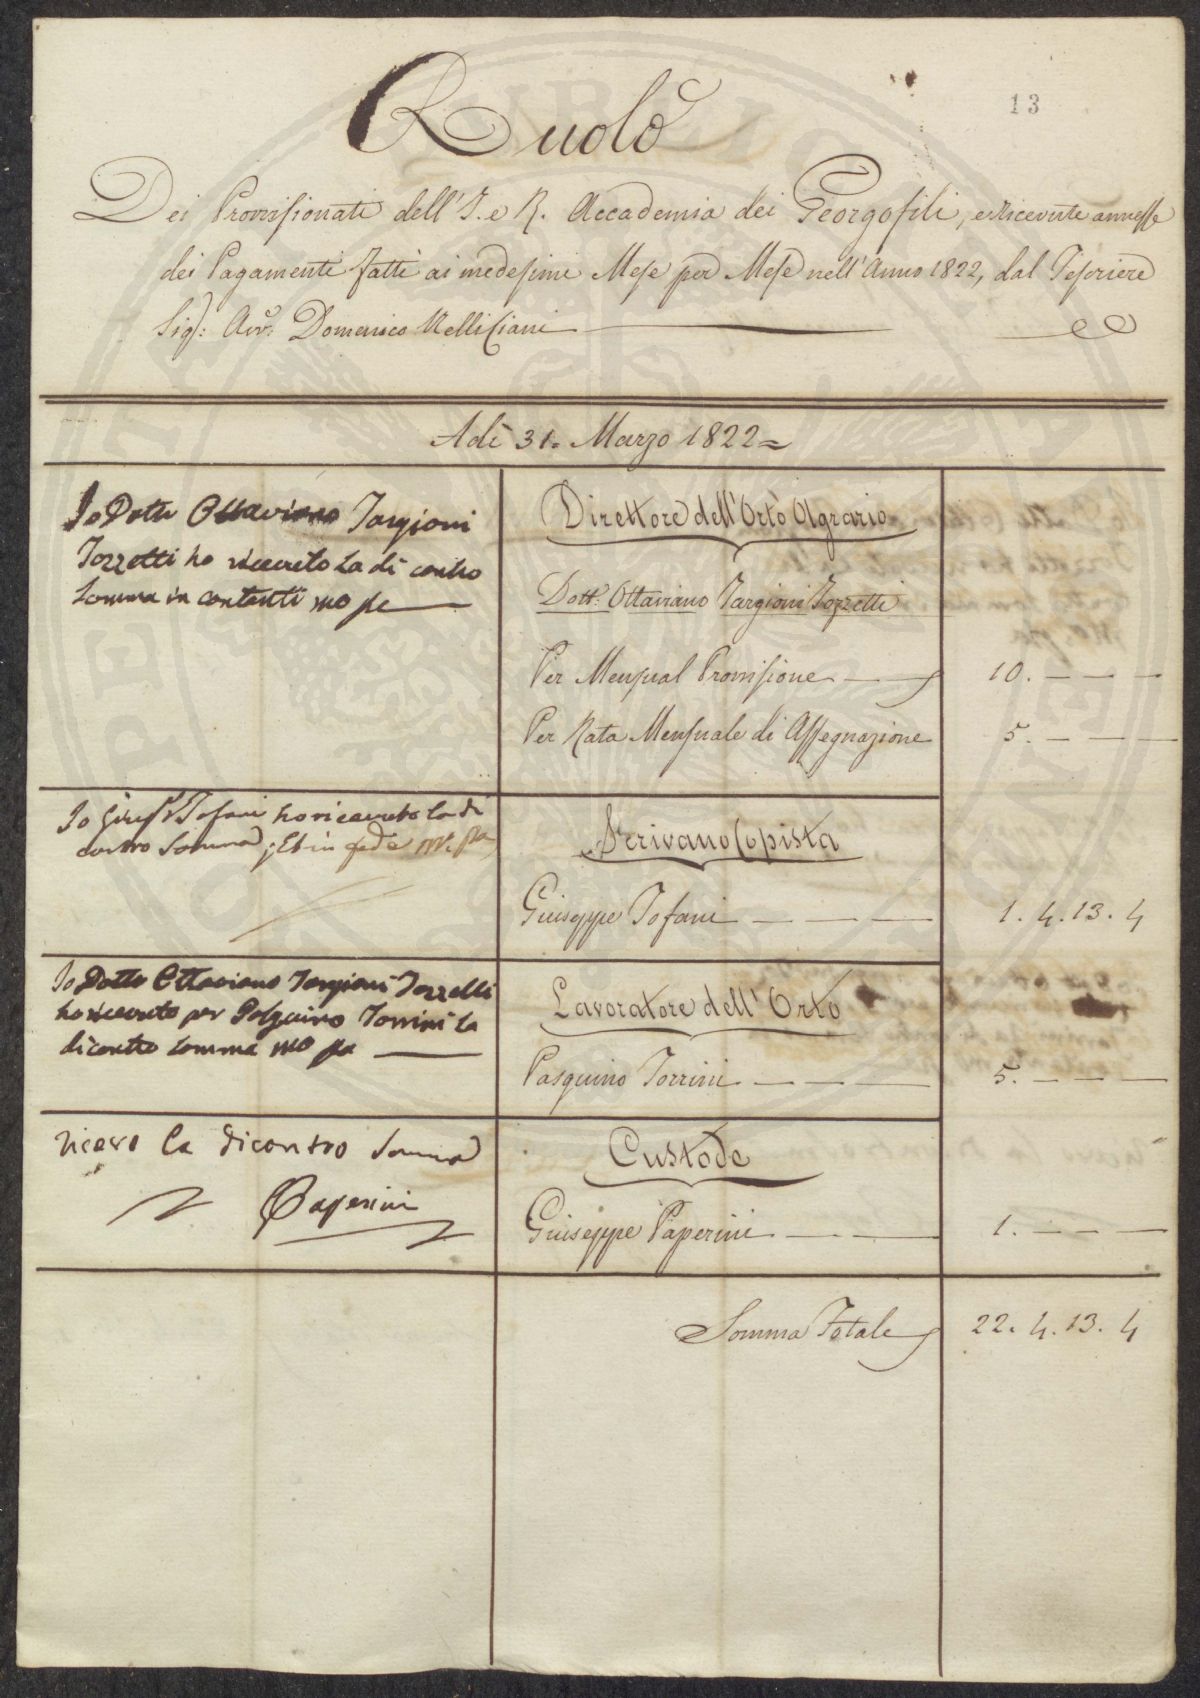 13
Ruolo
Dei Provvisionati dell'I. e R. Accademia dei Georgofili, e Ricevute annesse
dei Pagamenti fatti ai medesimi Mese per Mese nell'Anno 1822, dal Tesoriere
Sig: Avv: Domenico
Adì 31. Marzo 1822=
Io Dottr Ottaviano Targioni
Tozzetti ho ricevuto la di contro
Somma in contanti mo pa
Direttore dell'Orto Agrario
Dott: Ottaviano Targioni Tozzetti
Per Mensual Provvisione 10. — — —
Per Rata Mensuale di Assegnazione 5. — — —
Io Giusep Tofani ho ricevuto la di
contro Somma; Et in fede mo. pa
Scrivano Copista
Giuseppe Tofani — — — 1. 4. 13. 4
Io Dotto Ottaviano Targioni Tozzetti
ho ricevuto per Pasquino Torrini la
di contro somma mo pa
Lavoratore dell'Orto
Pasquino Torrini — — — 5. — — —
Ricevo la di contro Somma
G Paperini
Custode
Giuseppe Paperini — — — 1. — — —
Somma Totale 22. 4. 13. 4